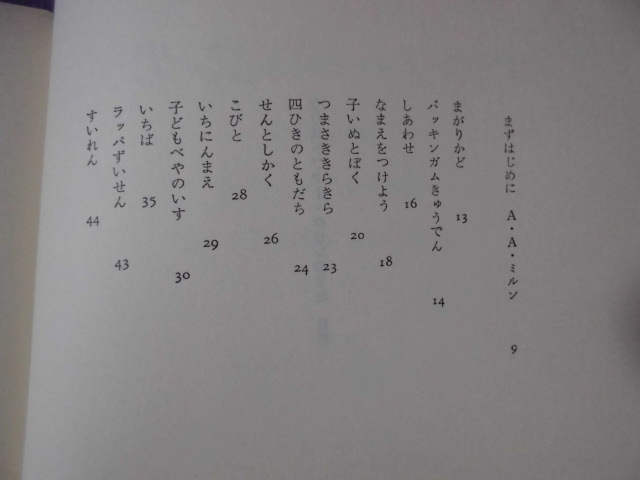 まずはじめに A・A・ミルン 9
まがりかど 13
バッキンガムきゅうでん 14
しあわせ 16
なまえをつけよう 18
子いぬとぼく 20
つまさききらきら 23
四ひきのともだち 24
せんとしかく 26
こびと 28
いちにんまえ 29
子どもべやのいす 30
いちば 35
ラッパずいせん 43
すいれん 44